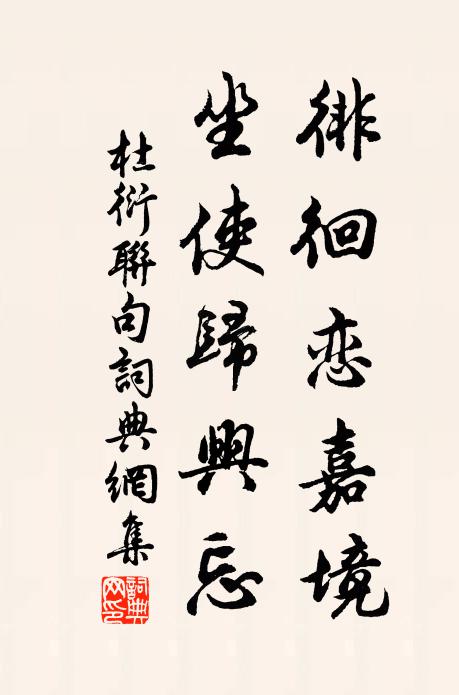 徘徊恋嘉境
坐使歸興忘
杜衍聯句詞典網集
詞典网印